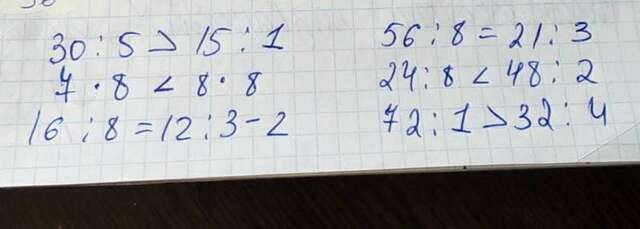 30 : 5 > 15 : 1
7 · 8 < 8 · 8
16 : 8 = 12 : 3 - 2
56 : 8 = 21 : 3
24 : 8 < 48 : 2
72 : 1 > 32 : 4